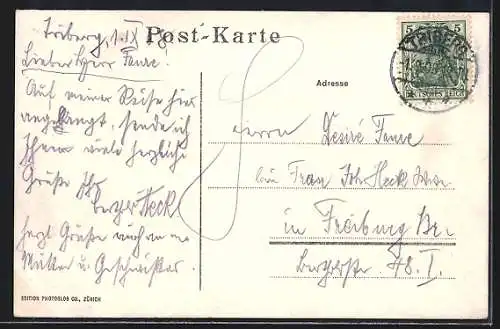 Post-Karte
Triberg, 1.IX 08
Lieber Herr Faure
Auf meiner Reise hier
angelangt, sende ich
Ihnen viele herzliche
Grüße Ihr
Heck
herzl Grüße auch an
Mutter u. Geschwister.
EDITION PHOTOGLOB CO., ZÜRICH
5 5
TRIBERG
DEUTSCHES REICH
Adresse
Herrn Desiré Faure
bei Frau Joh. Heck Wwe.
in Freiburg Br.
48. I.